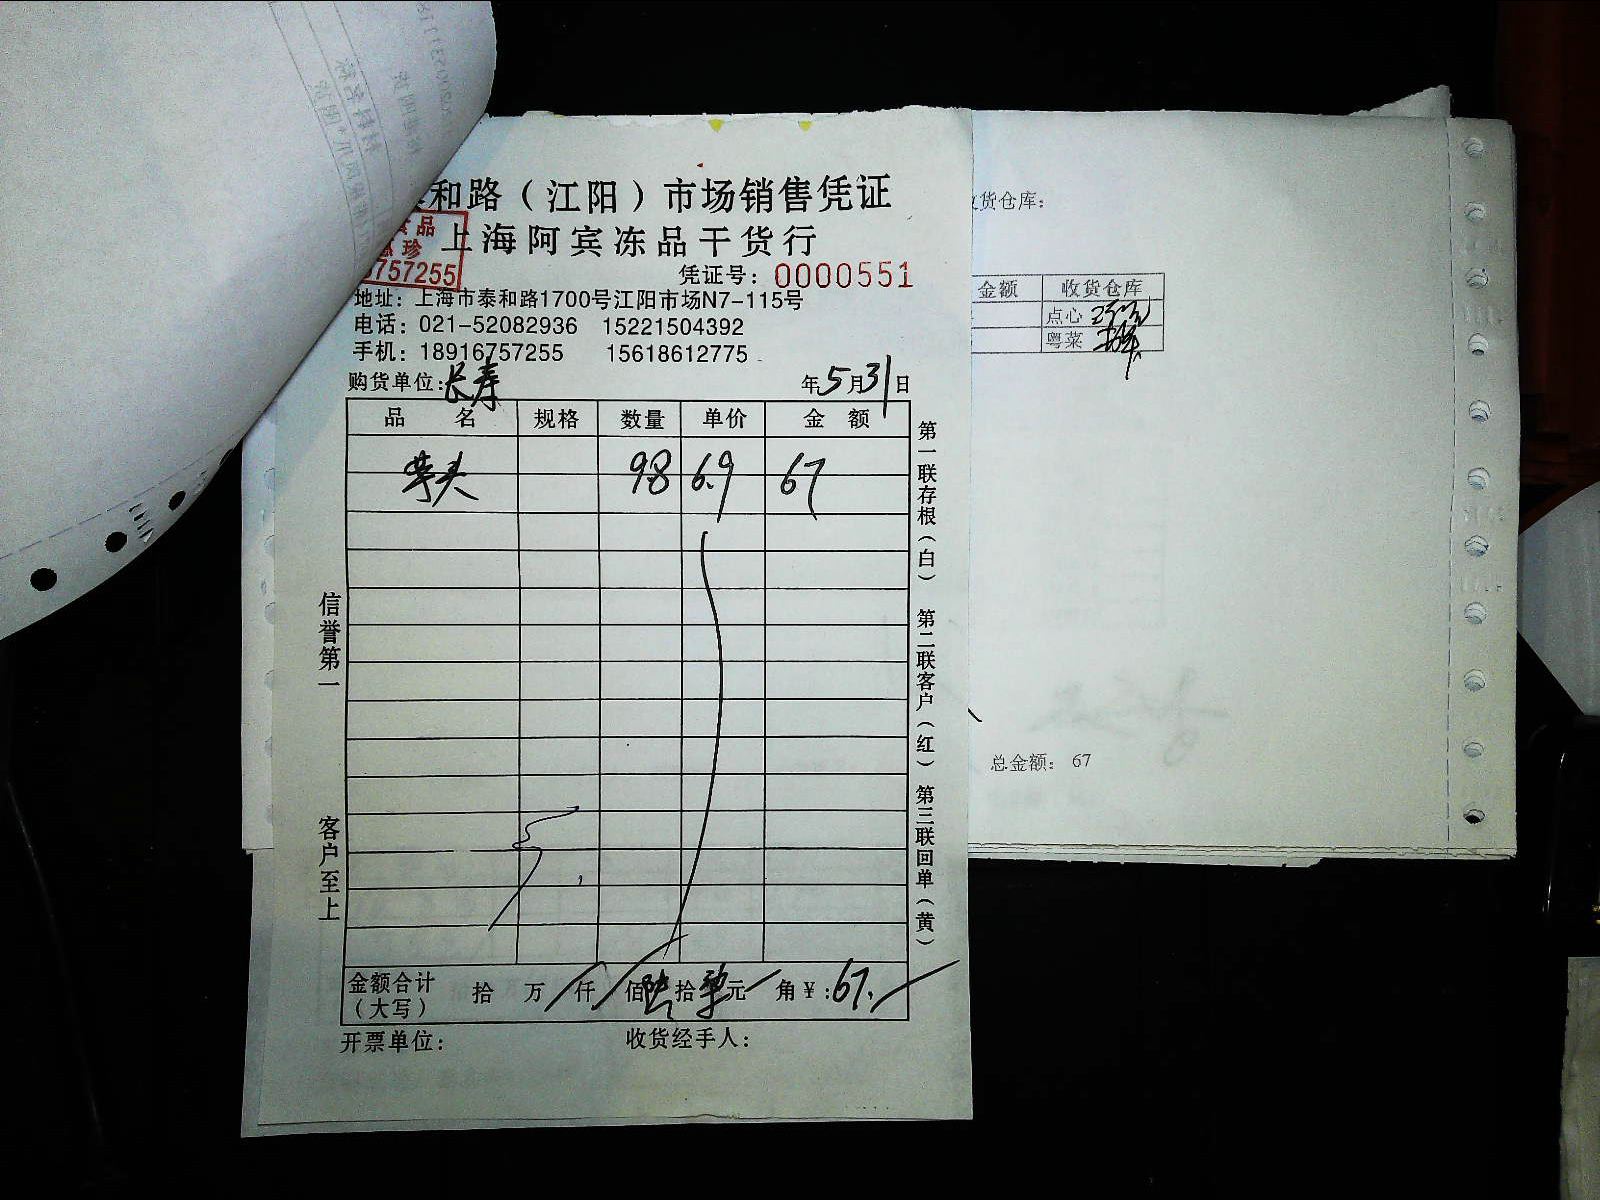 和路（江阳）市场销售凭证
上海阿宾冻品干货行
食品
珍
757255
凭证号：0000551
地址：上海市泰和路1700号江阳市场N7-115号
电话：021-52082936 15221504392
手机：18916757255 15618612775
购货单位：长寿 年5月31日
品名 规格 数量 单价 金额
芋头 9.8 6.9 67
金额合计（大写） 拾 万 仟 佰陆拾柒元 角￥：67.
开票单位： 收货经手人：
信誉第一
客户至上
第一联存根（白） 第二联客户（红） 第三联回单（黄）
货仓库：
金额 收货仓库
点心
粤菜
总金额： 67